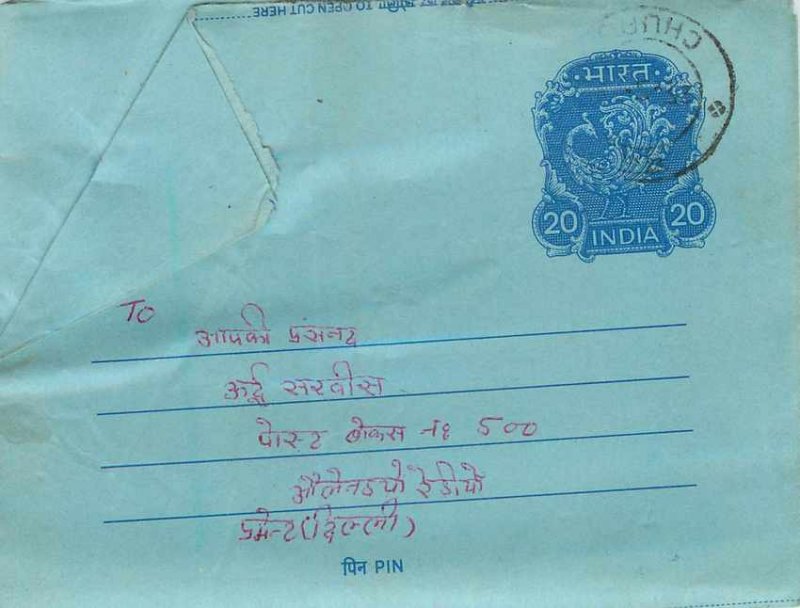 TO OPEN CUT HERE
CHURU
भारत
20 20
INDIA
TO
आपकी प्रसनद
उर्दू सरवीस
पोस्ट बोकस नः 500
औलेनडयो रेडीयो
(दिल्ली)
पिन PIN